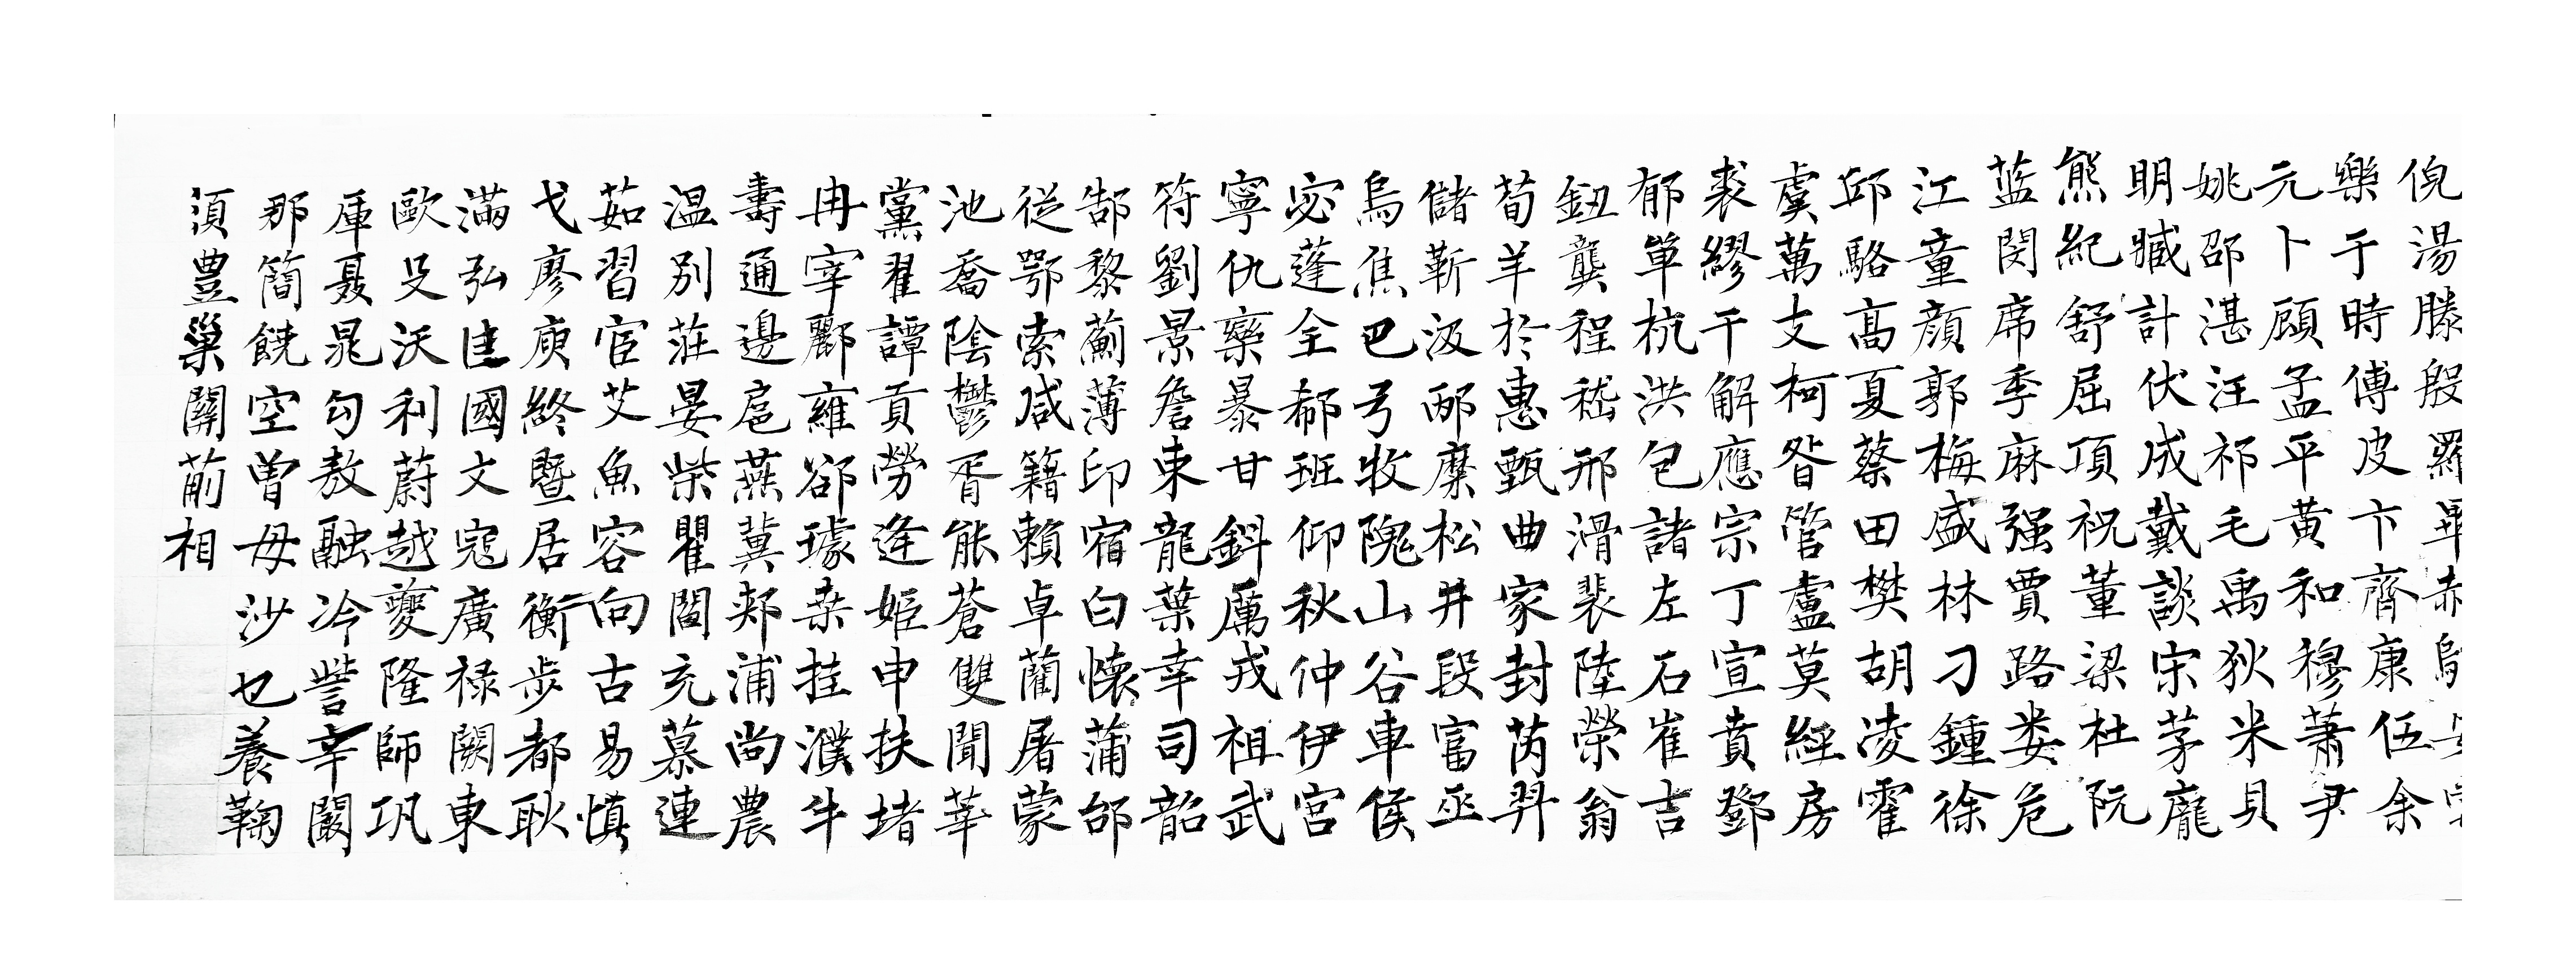 倪湯滕殷羅畢
樂于時傅皮卞齊康伍余
元卜顧孟平黃和穆蕭尹
姚邵湛汪祁毛禹狄米貝
明臧計伏成戴談宋茅龐
熊紀舒屈項祝董梁杜阮
蓝閔席季麻强賈路娄危
江童顏郭梅盛林刁鍾徐
邱駱高夏蔡田樊胡凌霍
虞萬支柯昝管盧莫經房
裘繆干解應宗丁宣賁鄧
郁單杭洪包諸左石崔吉
鈕龔程嵇邢滑裴陸榮翁
荀羊於惠甄曲家封芮羿
儲靳汲邴糜松井段富巫
烏焦巴弓牧隗山谷車侯
宓蓬全郗班仰秋仲伊宮
寧仇欒暴甘鈄厲戎祖武
符劉景詹束龍葉幸司韶
郜黎薊薄印宿白懷蒲邰
從鄂索咸籍賴卓藺屠蒙
池喬陰鬱胥能蒼雙聞莘
黨翟譚貢勞逄姬申扶堵
冉宰酈雍郤璩桑挂濮牛
壽通邊扈燕冀郟浦尚農
温別莊晏柴瞿閻充慕連
茹習宦艾魚容向古易慎
戈廖庾終暨居衡步都耿
滿弘匡國文寇廣禄闕東
歐殳沃利蔚越夔隆師巩
厙聶晁勾敖融冷訾辛闞
那簡饒空曾毋沙乜養鞠
須豊巢關蒯相